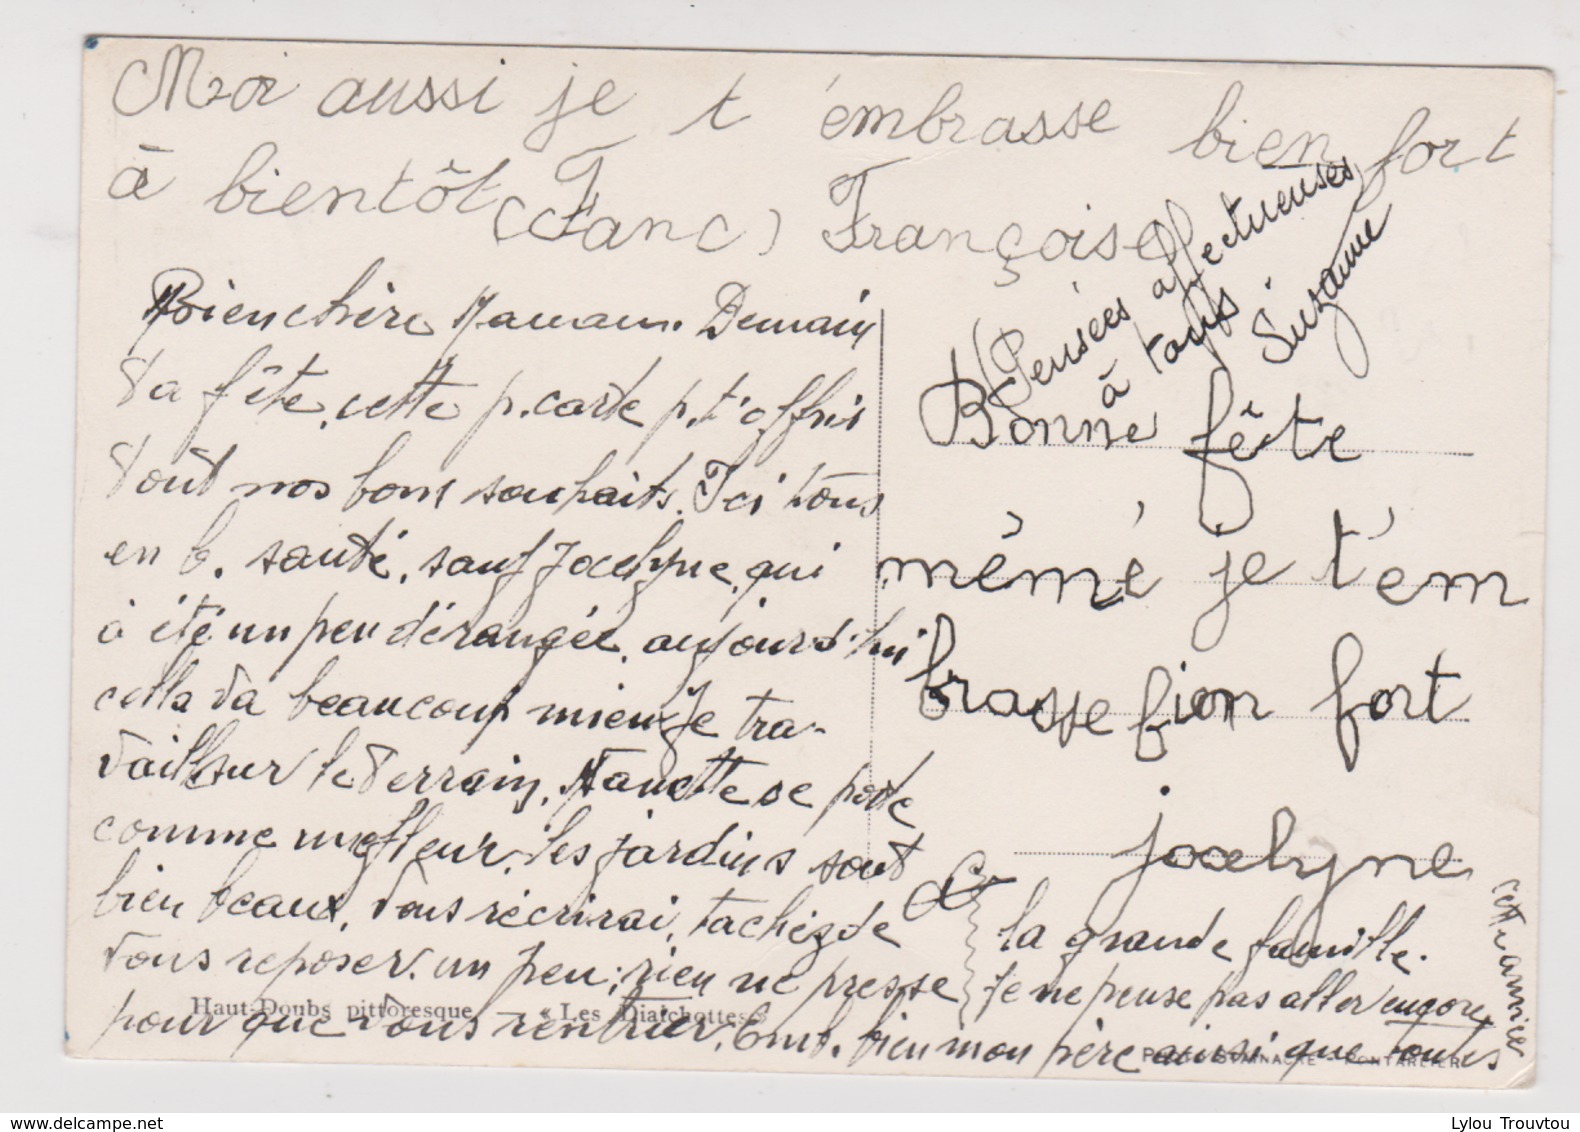 Moi aussi je t'embrasse bien fort
à bientôt (Fanc) Françoise
Pensées affectueuses
à tous
Suzanne
Bien chère Maman. Demain
ta fête, cette p. carte p. t'offrir
tout nos bons souhaits. Ici tous
en b. santé, sauf Jocelyne, qui
à été un peu dérangée, aujourd'hui
cella va beaucoup mieux Je tra-
vaille sur le terrain, Nanette se porte
comme une fleur, les jardins sont
bien beaux, Vous récrirai, tachez de
vous reposer un peu, rien ne presse
pour que vous rentrier, Emb. bien mon père ainsi que toute
la grande famille.
Je ne pense pas aller encore
cette année
Bonne fête
mémé je t'em
brasse bion fort
jocelyne
Haut-Doubs pittoresque - « Les Diaichottes »
STAINACRE - PONTARLIER
Lylou Trouvtou